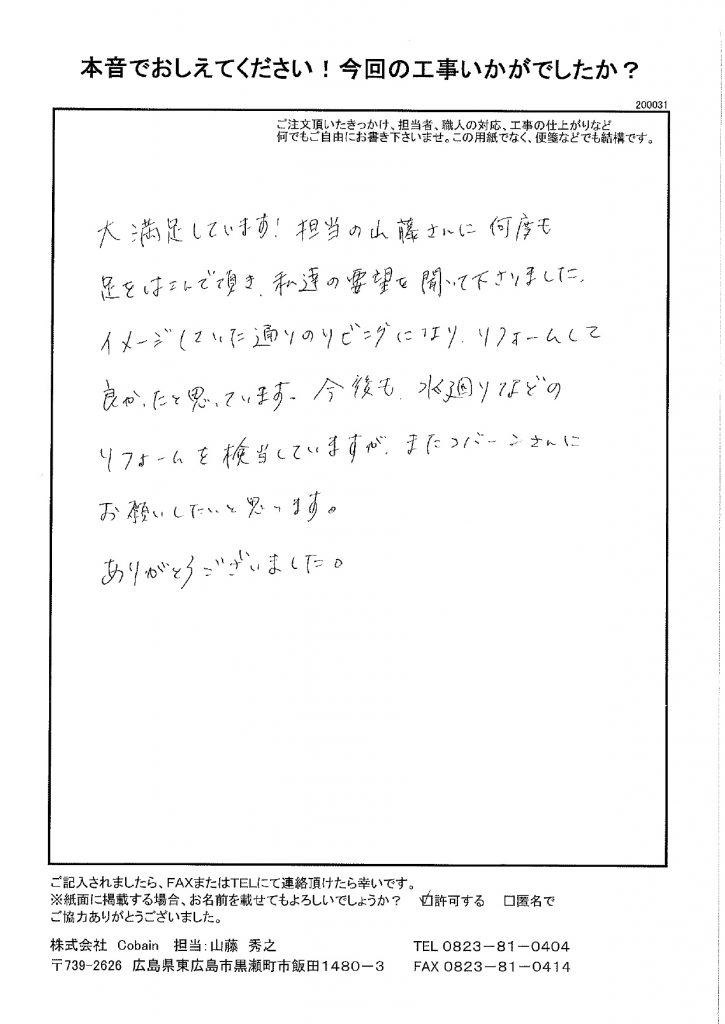 本音でおしえてください！今回の工事いかがでしたか？
200031
ご注文頂いたきっかけ、担当者、職人の対応、工事の仕上がりなど
何でもご自由にお書き下さいませ。この用紙でなく、便箋などでも結構です。
大満足しています！担当の山藤さんに何度も
足をはこんで頂き、私達の要望を聞いて下さりました。
イメージしていた通りのリビングになり、リフォームして
良かったと思っています。今後も、水廻りなどの
リフォームを検当していますが、またコバーンさんに
お願いしたいと思います。
ありがとうございました。
ご記入されましたら、FAXまたはTELにて連絡頂けたら幸いです。
※紙面に掲載する場合、お名前を載せてもよろしいでしょうか？ ☑許可する □匿名で
ご協力ありがとうございました。
株式会社 Cobain 担当：山藤 秀之 TEL 0823－81－0404
〒739-2626 広島県東広島市黒瀬町市飯田1480－3 FAX 0823－81－0414